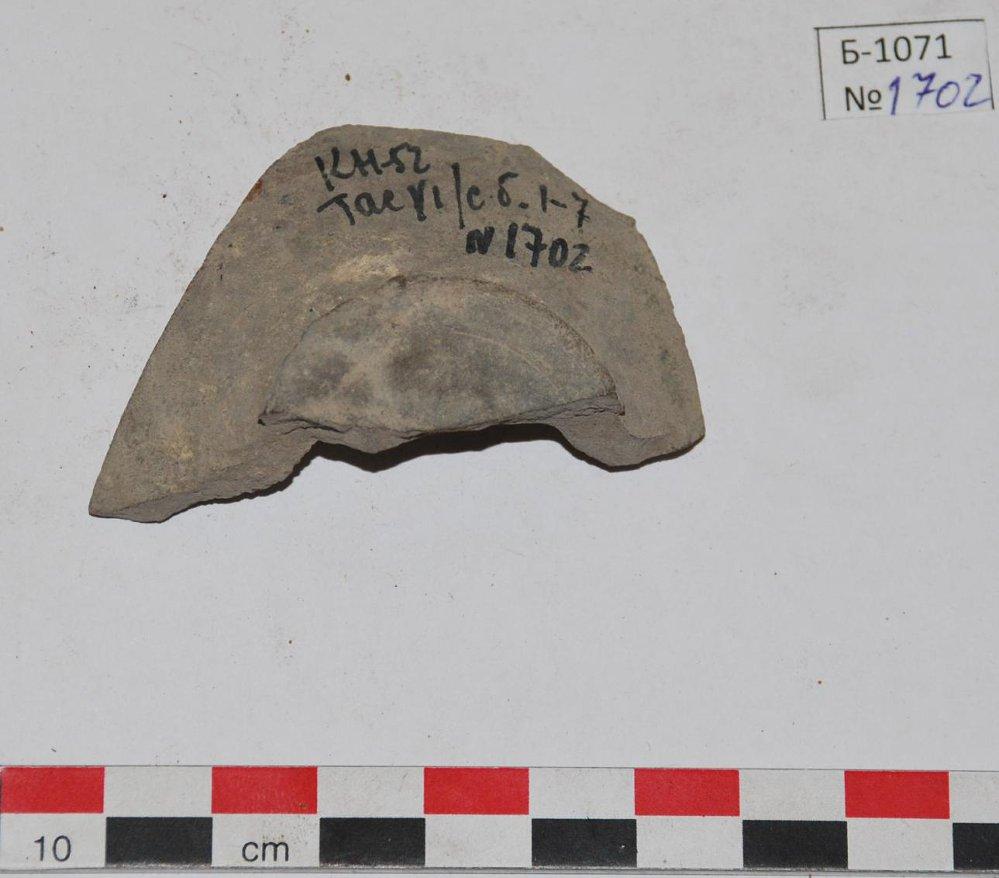 Б-1071
№1702
КН-52
Тас VI/с.б. 1-7
N1702
10 cm